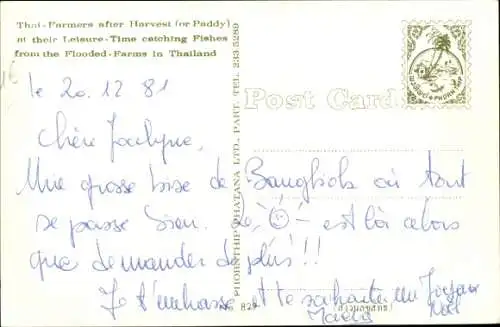 Thai-Farmers after Harvest (or Paddy)
at their Leisure-Time catching Fishes
from the Flooded-Farms in Thailand
Post Card
PHORNTHIP PHATANA LTD., PART. TEL. 233 5289
le 20. 12 81
Chère Jocelyne,
Une grosse bise de Bangkok où tout
se passe bien. Le est là alors
que demander de plus!!
Je t'embrasse et te souhaite un Joyeux
Noël